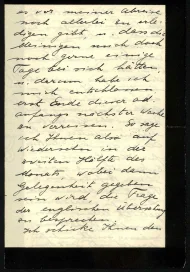 es vor meiner Abreise
noch allerlei zu erle-
digen gibt u. dass die
Meinigen mich doch
noch gerne einige
Tage bei sich hätten
u. darum habe ich
mich entschlossen
erst Ende dieser od.
anfangs nächster Woche
zu verreisen. So sage
ich Ihnen also auf
Wiedersehn in der
zweiten Hälfte des
Monats, wobei dann
Gelegenheit gegeben
sein wird, die Frage
der englischen Übersetzung
zu besprechen.
Ich schicke Ihnen den